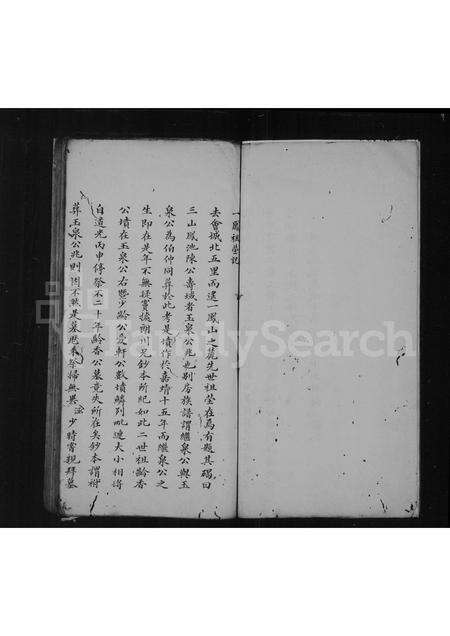 一鳳祖塋記
去會城北五里而遙一鳳山之麓先世祖塋在焉有題其碣曰
三山鳳池陳公壽域者玉泉公兆也別房族譜謂繼泉公與玉
泉公為伯仲同葬於此考是墳作於嘉靖十五年而繼泉公之
生即在是年不無疑竇據朗川兄鈔本所紀如此二世祖齡香
公墳在玉泉公右暨少齡公愛軒公數墳鱗列毗連大小相將
自道光丙申停祭不二十年齡香公墓竟失所在矣鈔本謂附
葬玉泉公兆則因不然是墓歷奉祭掃無異 少時嘗視拜墓
FamilySearch